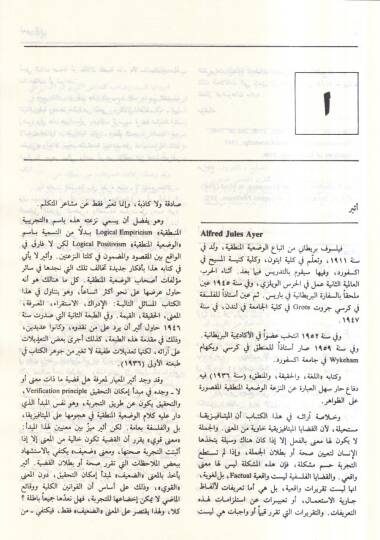 ا
أثير
Alfred Jules Ayer
فيلسوف بريطاني من اتباع الوضعية المنطقية، ولد في
سنة ١٩١١، وتعلّم في كلية ايتون، وكلية كنيسة المسيح في
اكسفورد، وفيها سيقوم بالتدريس فيما بعد. أثناء الحرب
العالمية الثانية عمل في الحرس الويلزي، وفي سنة ١٩٤٥ عين
ملحقاً بالسفارة البريطانية في باريس. ثم عين أستاذاً للفلسفة
في كرسي جروت Grote في كلية الجامعة في لندن، في سنة
١٩٤٧.
وفي سنة ١٩٥٢ انتخب عضواً في الأكاديمية البريطانية.
وفي سنة ١٩٥٩ صار أستاذاً للمنطق في كرسي ويكهام
Wykeham في جامعة اكسفورد.
وكتابه «اللغة، والحقيقة، والمنطق» (سنة ١٩٣٦) فيه
دفاع حار سهل العبارة عن النزعة الوضعية المنطقية المقصورة
على الظواهر.
وخلاصة آرائه في هذا الكتاب أن الميتافيزيقا
مستحيلة، لأن القضايا الميتافيزيقية خاوية من المعنى. والجملة
لا يكون لها معنى بالفعل إلا إذا كان هناك وسيلة يتخذها
الإنسان لتعيين صحة أو بطلان الجملة، وإذا لم تستطع
التجربة حسم مشكلة، فإن هذه المشكلة ليس لها معنى
واقعي. والقضايا الفلسفية ليست واقعية Factual، بل لغوية،
انها ليست تقريرات واقعية، بل هي أما تعريفات لألفاظ
جارية الاستعمال، أو تعبيرات عن استلزامات لهذه
التعريفات. والتقريرات التي تقرر قيماً أو واجبات هي ليست
صادقة ولا كاذبة، وإنما تعبّر فقط عن مشاعر المتكلم
وهو يفضل أن يسمي نزعته هذه باسم «التجريبية
المنطقية» Logical Empiricism بدلاً من التسمية باسم
«الوضعية المنطقية» Logical Positivism لكن لا فارق في
الواقع بين المقصود والمضمون في كلتا النزعتين. وأثير لا يأتي
في كتابه هذا بأفكار جديدة تخالف تلك التي نجدها في سائر
مؤلفات أصحاب الوضعية المنطقية. كل ما هنالك هو أنه
حاول عرضها على نحو أكثر اتساعاً، وهو يتناول في هذا
الكتاب المسائل التالية: الإدراك، الاستقراء، المعرفة،
المعنى، الحقيقة، القيمة. وفي الطبعة الثانية التي صدرت سنة
١٩٤٦ حاول أثير أن يرد على من نقدوه، وكانوا عديدين،
وذلك في مقدمة هذه الطبعة، كذلك أجرى بعض التعديلات
على آرائه، لكنها تعديلات طفيفة لا تغير من جوهر الكتاب في
طبعته الأولى (١٩٣٦).
وقد وجد أثير المعيار لمعرفة هل لقضية ما ذات معنى أو
لا ـ وجده في مبدأ إمكان التحقيق Verification principle،
والتحقيق يكون عن طريق التجربة، وهو نفس المبدأ الذي
دار عليه كلام الوضعية المنطقية في هجومها على الميتافيزيقا،
بل والفلسفة بعامة. لكن أثير ميّز بين معنيين لهذا المبدأ:
«معنى قوي» يقرر أن القضية تكون خالية من المعنى إلا إذا
أثبتت التجربة صحتها، ومعنى «ضعيف» يكتفي بالاستشهاد
ببعض الملاحظات التي تقرر صحة أو بطلان القضية. أثير
يأخذ بالمعنى «الضعيف» لمبدأ إمكان التحقيق، دون المعنى
«القوي»، وذلك على أساس أن القوانين الكلية ووقائع
الماضي لا يمكن إخضاعها للتجربة، فهل نعدّها جميعاً باطلة؟
كلا، ولهذا يقتصر على المعنى «الضعيف» فقط، فيكتفي ـ من